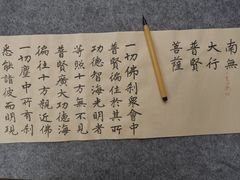 南無
大行
普賢
菩薩
一切佛剎眾會中
普賢徧住於其所
功德智海光明者
等照十方無不見
普賢廣大功德海
徧往十方親近佛
一切塵中所有剎
悉能詣彼而明現